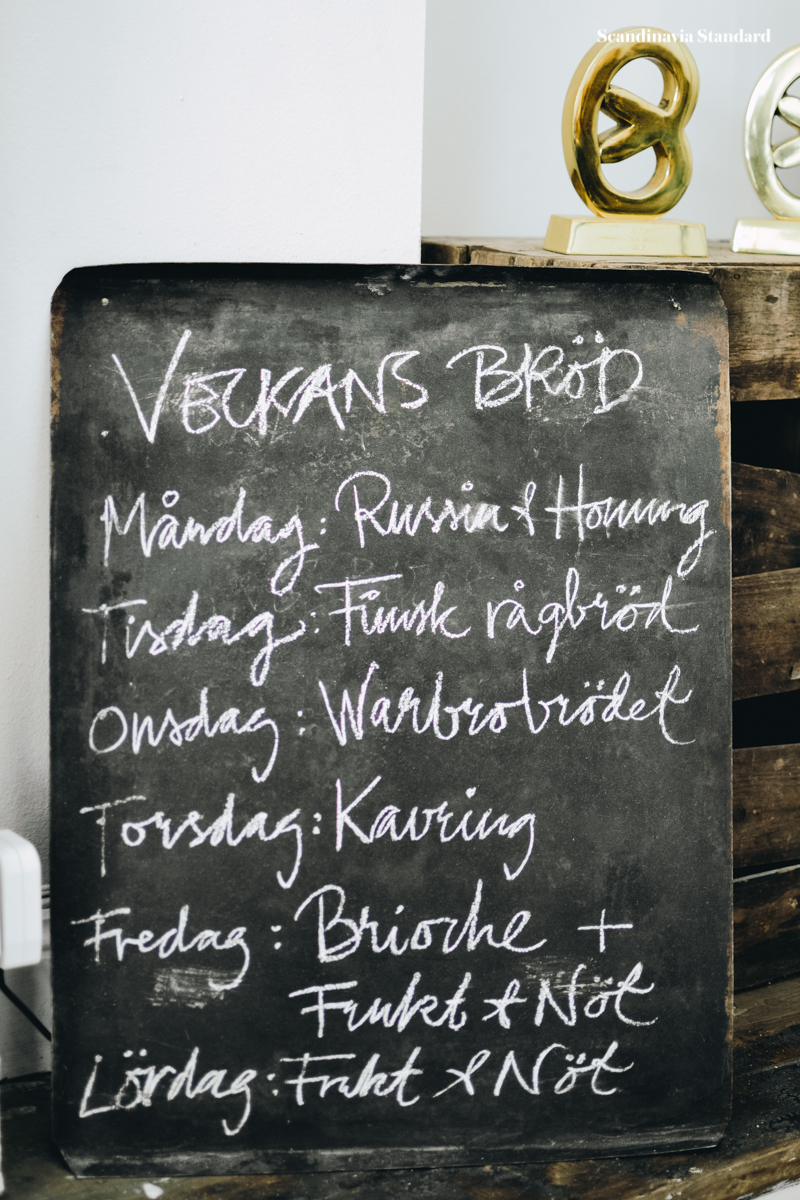 Scandinavia Standard
VECKANS BRÖD
Måndag: Russin & Honung
Tisdag: Finsk rågbröd
Onsdag: Warbrobrödet
Torsdag: Kavring
Fredag: Brioche +
Frukt & Nöt
Lördag: Frukt & Nöt